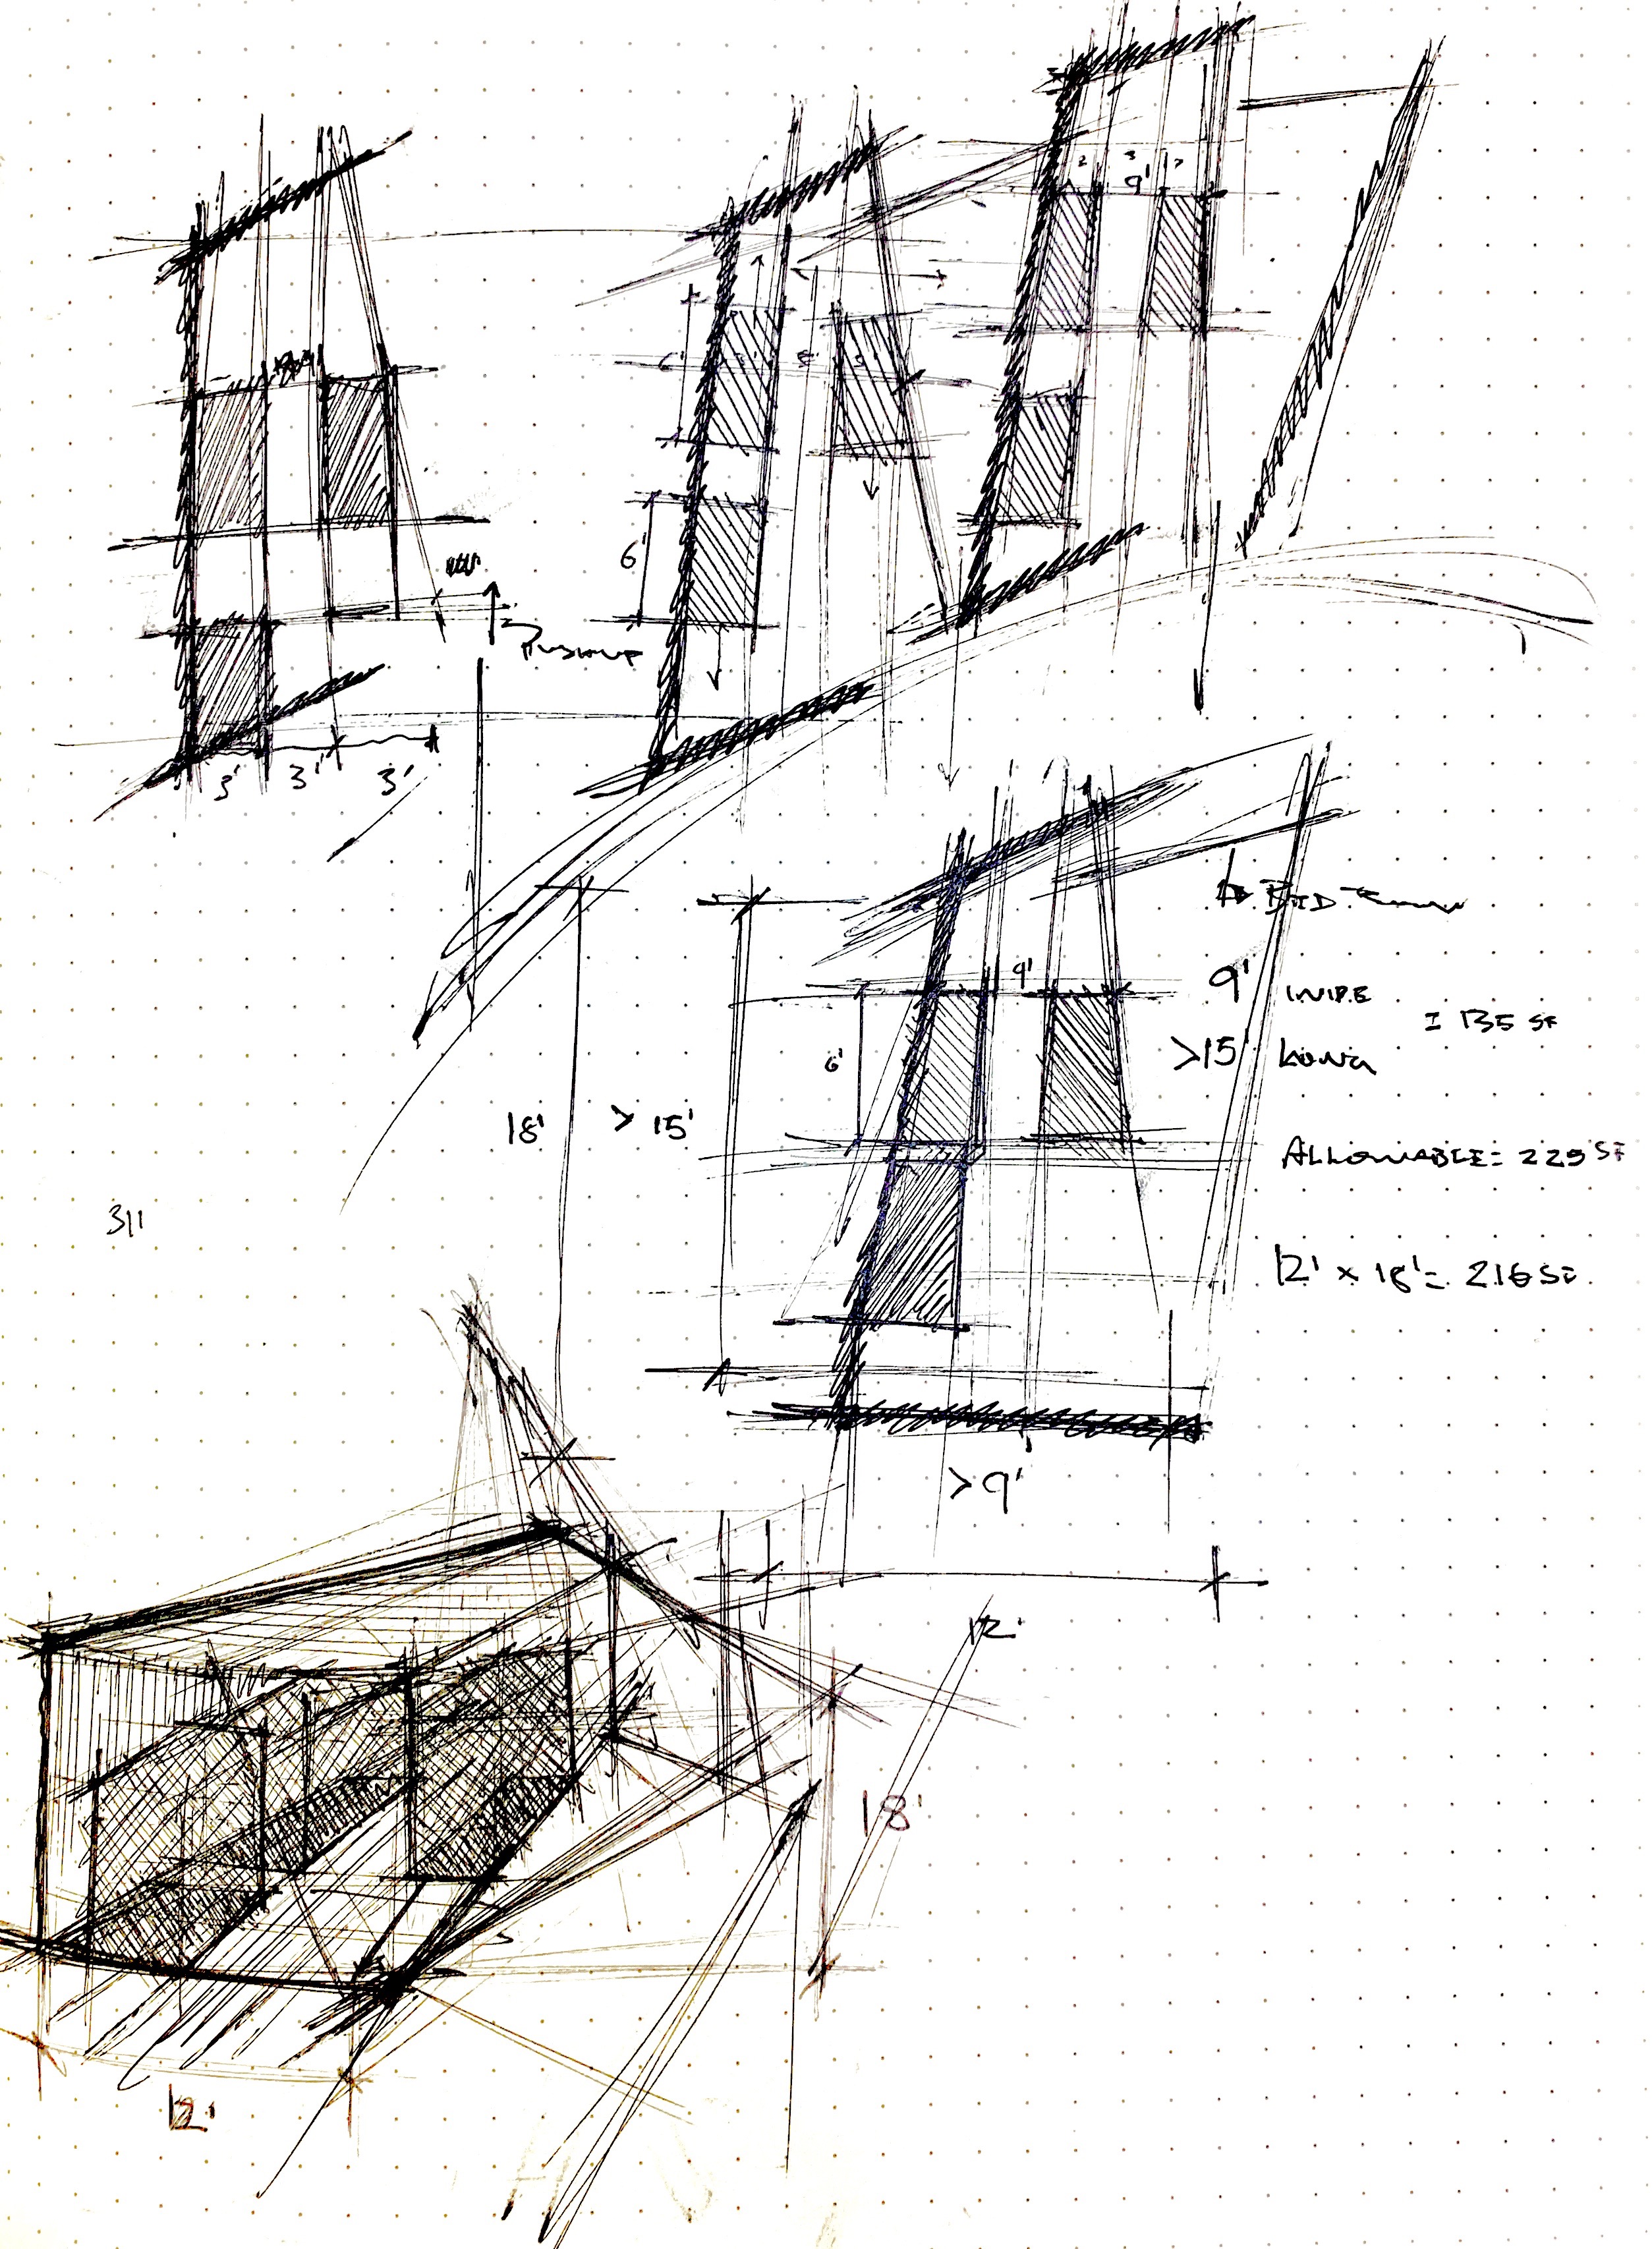 2 3 2
9'
6' 3' 3'
6'
2'
3' 3' 3'
9'
9' WIDE
= 135 SF
>15' LONG
6'
18' > 15'
ALLOWABLE = 225 SF
311
12' x 18' = 216 SF.
> 9'
12'
18'
12'